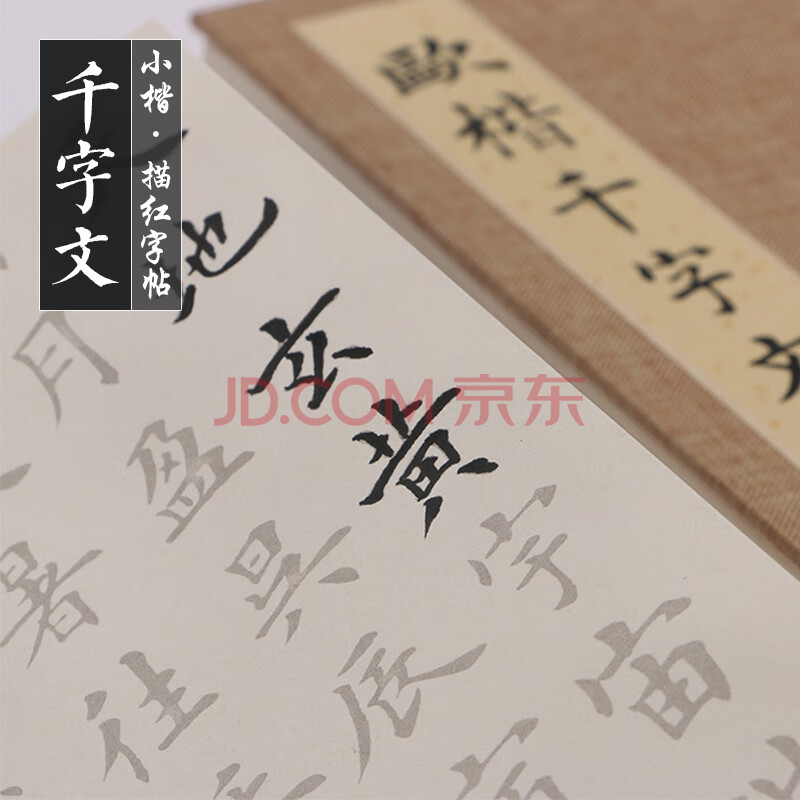 千字文
小楷·描红字帖
歐楷千字文
地玄黄宇宙
月盈昃辰
暑往
JD.COM 京东